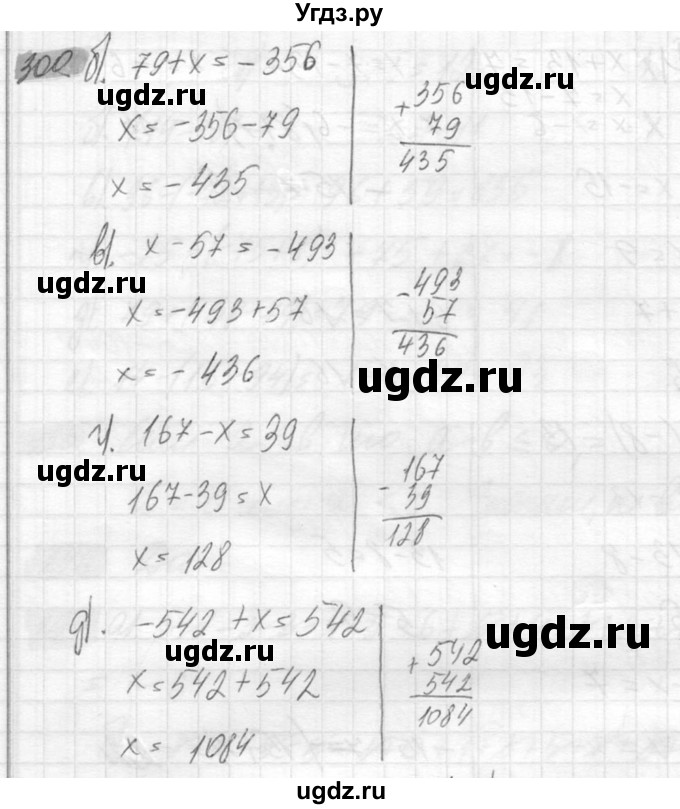 Угдз.ру
300 б). 79+x = -356
ugdz.ru
ugdz.ru
x = -356-79
x = -435
+ 356
79
435
в). x - 57 = -493
ugdz.ru
x = -493+57
x = -436
- 493
57
436
ugdz.ru
г). 167 - x = 39
ugdz.ru
167-39 = x
x = 128
- 167
39
128
д). -542 + x = 542
ugdz.ru
ugdz.ru
x = 542 + 542
x = 1084
+ 542
542
1084
ugdz.ru
ugdz.ru